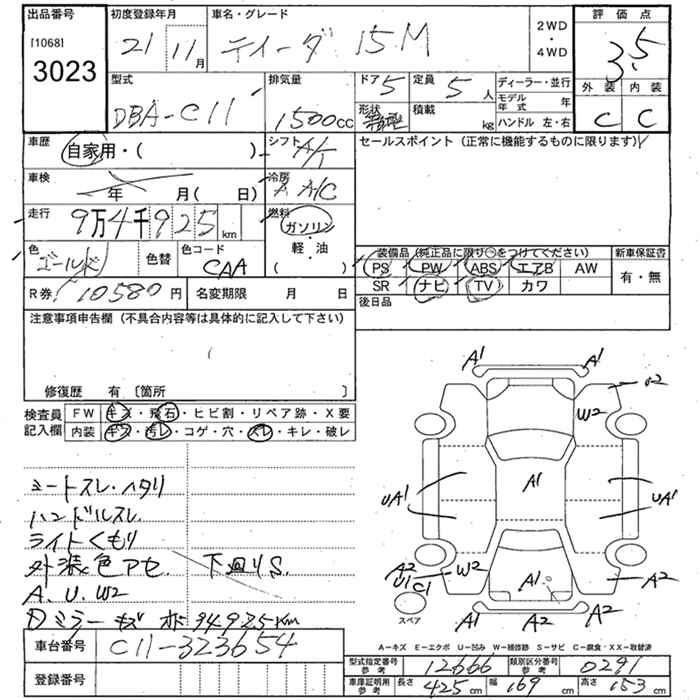 出品番号
[1068]
3023
初度登録年月
21年 11月
車名・グレード
ティーダ 15M
2WD
・
4WD
評価点
3.5
外装 内装
C C
型式
DBA-C11
排気量
1500cc
ドア 5
定員 5人
形状
積載 kg
ディーラー・並行
モデル年式 年
ハンドル 左・右
車歴
自家用・( )
シフト A/T
セールスポイント (正常に機能するものに限ります)
車検
年 月( 日)
冷房
A A/C
走行
9万4千925km
燃料
ガソリン
・
軽・油
( )
色
ゴールド
色替
色コード
CAA
装備品 (純正品に限り○をつけてください)
PS PW ABS エアB AW
SR ナビ TV カワ
新車保証書
有・無
後日品
R券 10580円
名変期限 月 日
注意事項申告欄 (不具合内容等は具体的に記入して下さい)
修復歴 有 〔箇所 〕
検査員記入欄
FW キズ・飛石・ヒビ割・リペア跡・X要
内装 キズ・汚レ・コゲ・穴・スレ・キレ・破レ
シートスレ・ヘタリ
ハンドルスレ
ライトくもり
外装色アセ 下廻りS
A.U.W2
ミラーキズ
94925Km
A1 A1
W2
A1
UA1 UA1
A2
U1 C1
W2
A1
A2
A1 A2 A2
スペア
A-キズ E-エクボ U-凹み W-補修跡 S-サビ C-腐食・XX-取替済
車台番号
C11-323654
登録番号
型式指定番号 参考 12666
類別区分番号 参考 0291
車庫証明用 参考
長さ 425cm 幅 169cm 高さ 153cm